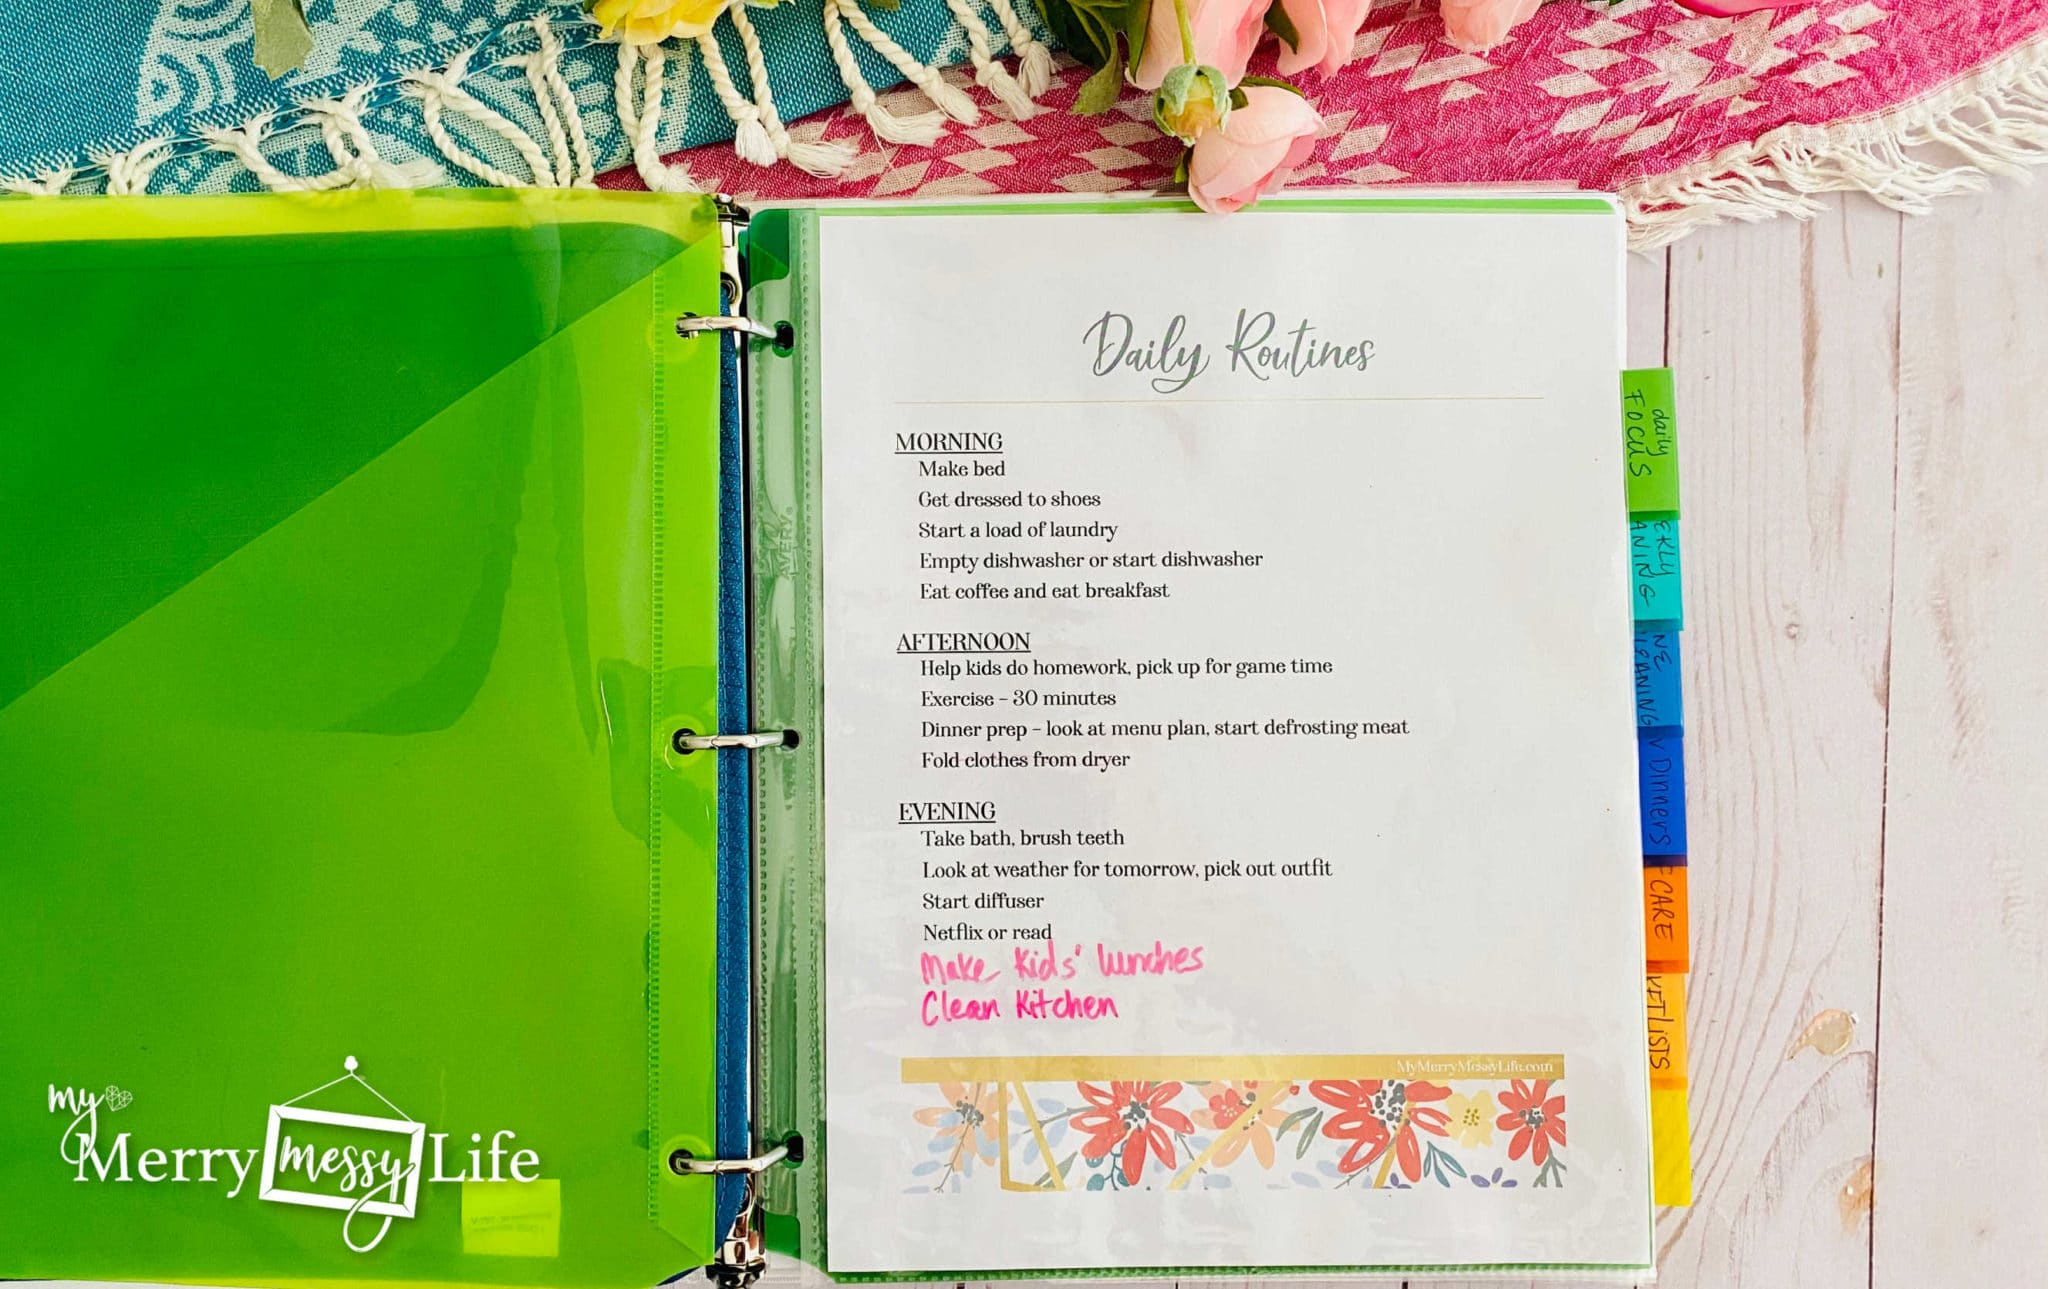 Daily Routines
MORNING
Make bed
Get dressed to shoes
Start a load of laundry
Empty dishwasher or start dishwasher
Eat coffee and eat breakfast
AFTERNOON
Help kids do homework, pick up for game time
Exercise – 30 minutes
Dinner prep – look at menu plan, start defrosting meat
Fold clothes from dryer
EVENING
Take bath, brush teeth
Look at weather for tomorrow, pick out outfit
Start diffuser
Netflix or read
Make Kids' lunches
Clean Kitchen
MyMerryMessyLife.com
AVERY®
daily
FOCUS
EKLY
ANING
NE
LEANING
Dinners
CARE
KET LISTS
my
Merry messy Life